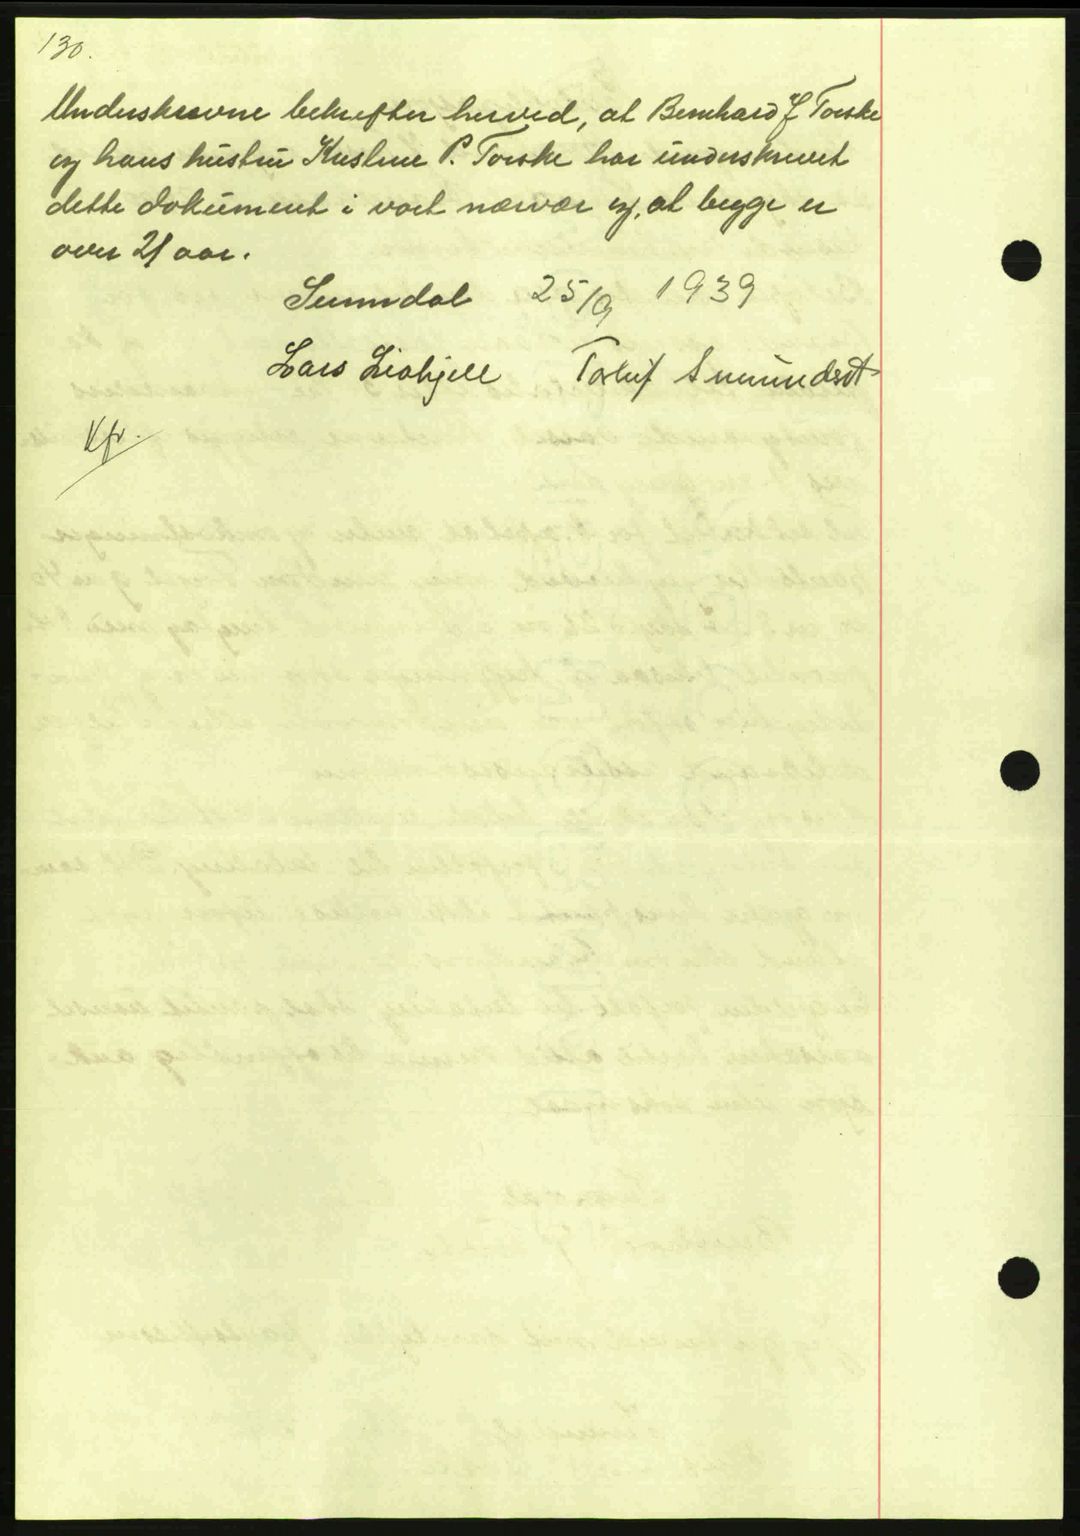 130.
Underskrevne bekrefter herved, at Bernhard J Torske
og hans hustru Kristine P. Torske har underskrevet
dette dokument i vort nærvær og, at begge er
over 21 aar.
Sunndal 25/9 1939
Lars Liahjell Torleif
Kfr.